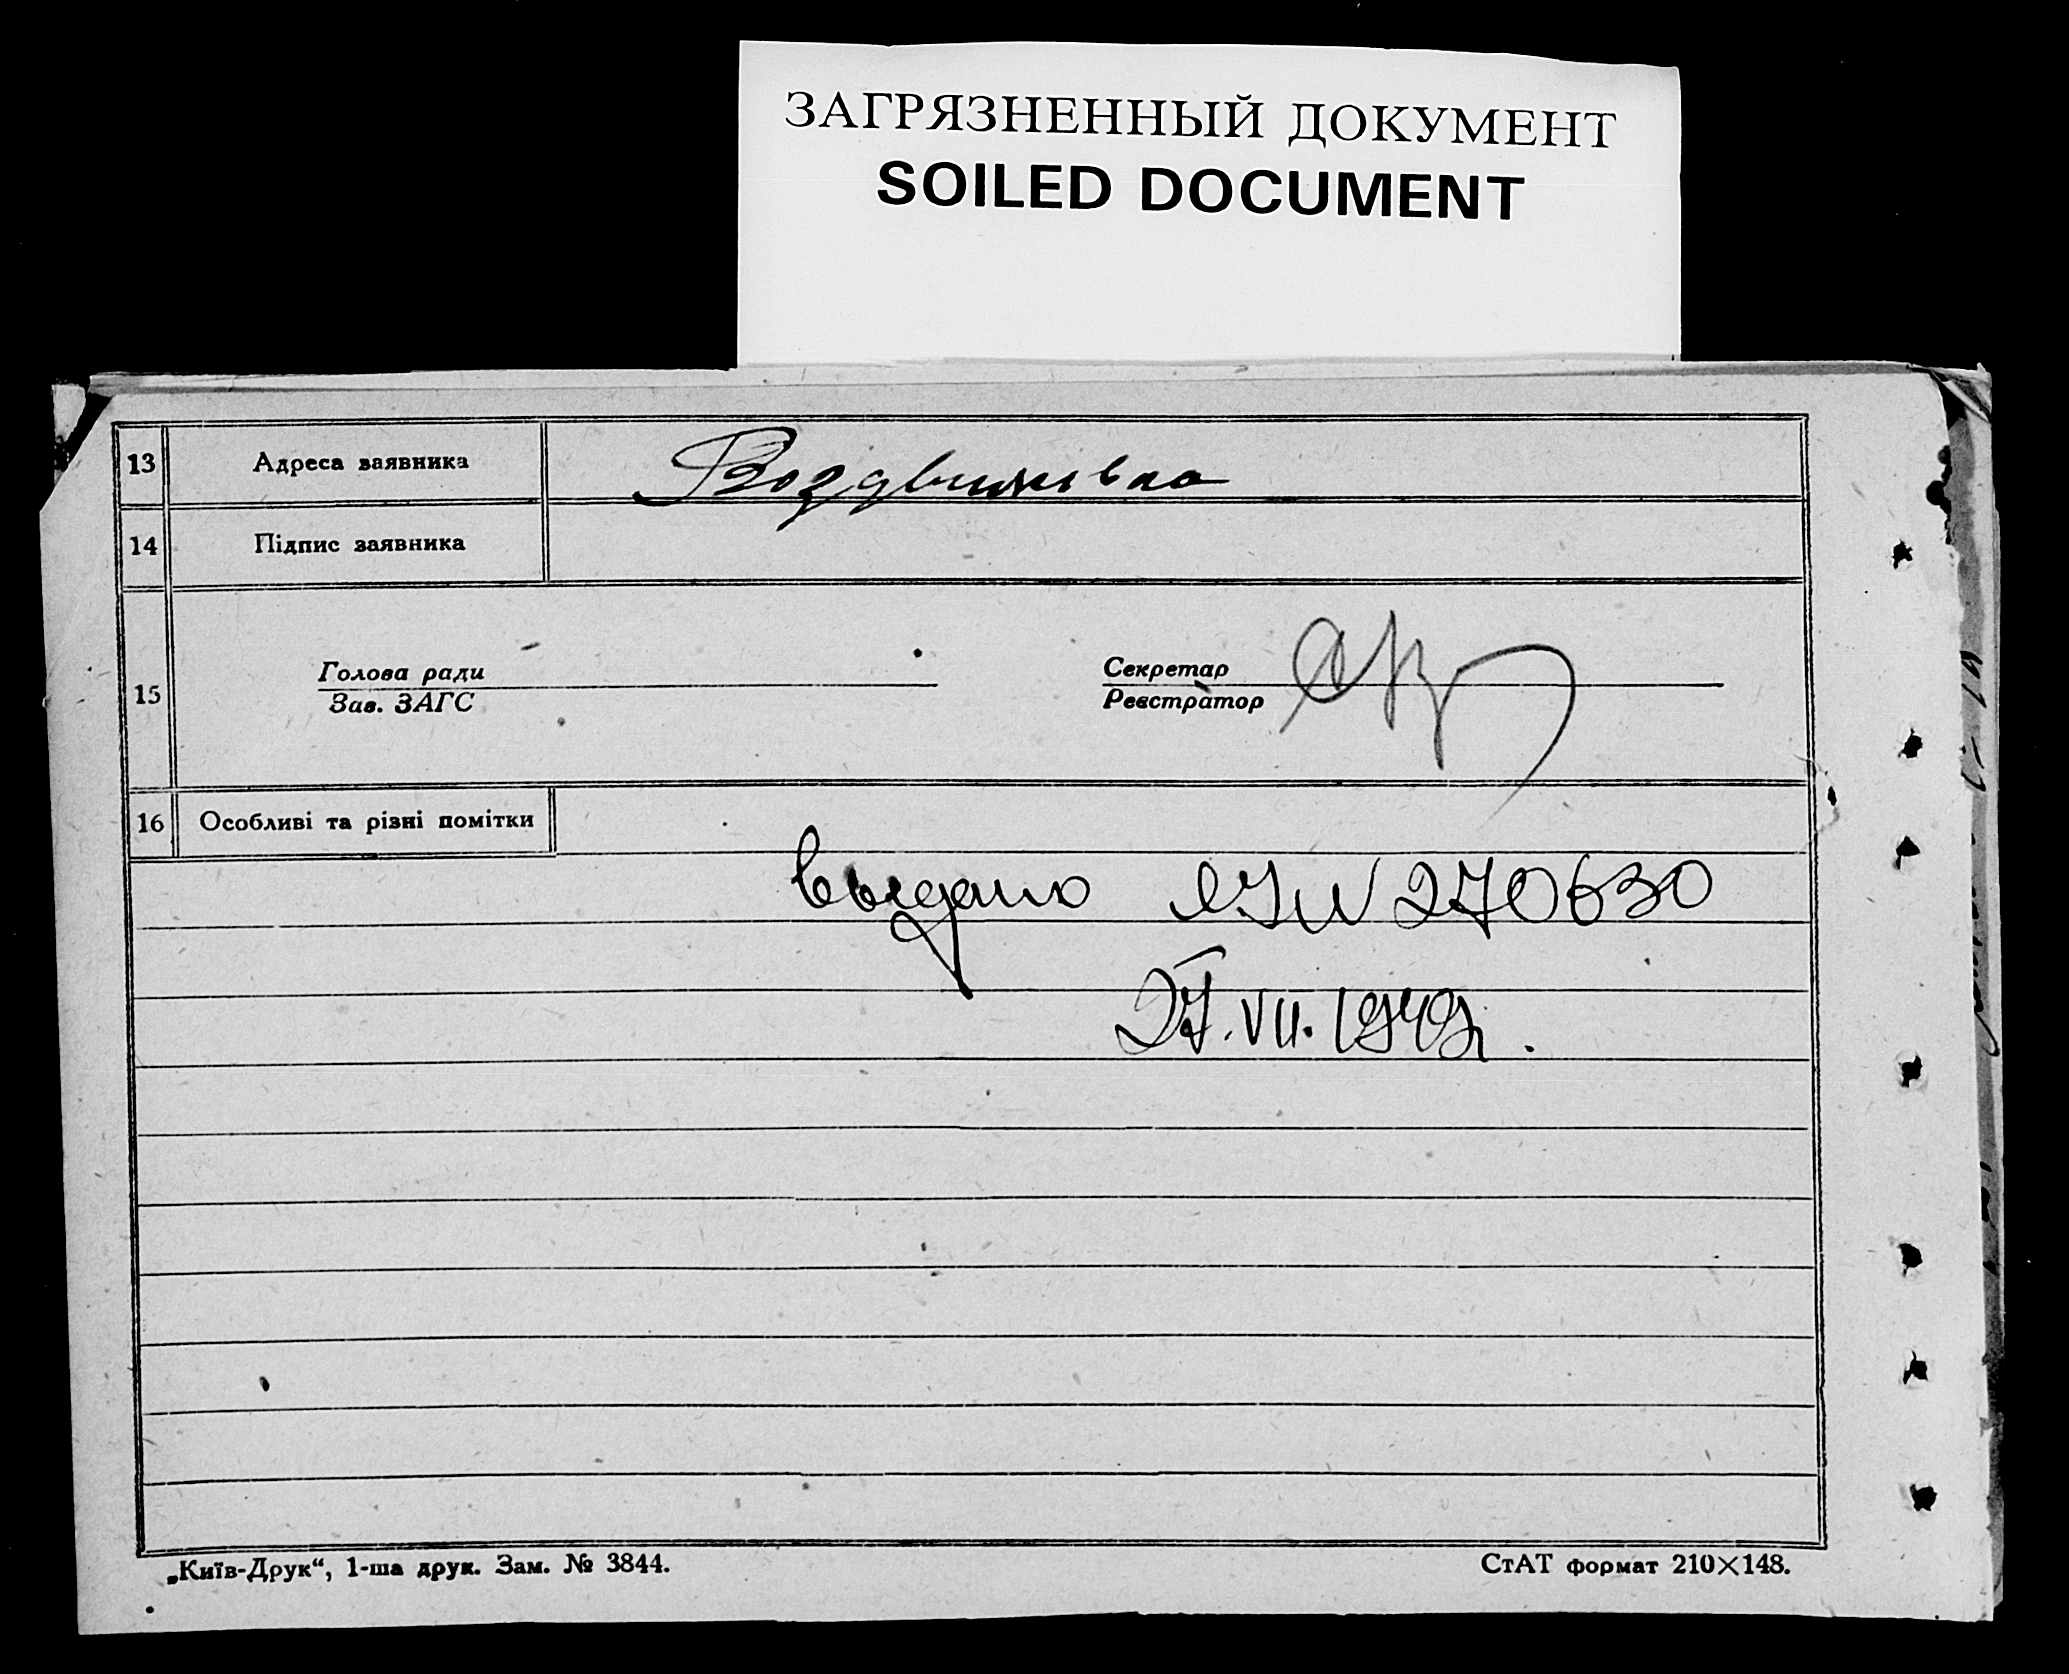 ЗАГРЯЗНЕННЫЙ ДОКУМЕНТ
SOILED DOCUMENT
13 Адреса заявника Воздвижівка
14 Підпис заявника
15 Голова ради Секретар
Зав. ЗАГС Реєстратор
16 Особливі та різні помітки
выдано N 270630
27.VII.1949.
„Київ-Друк“, 1-ша друк. Зам. № 3844. СтАТ формат 210×148.